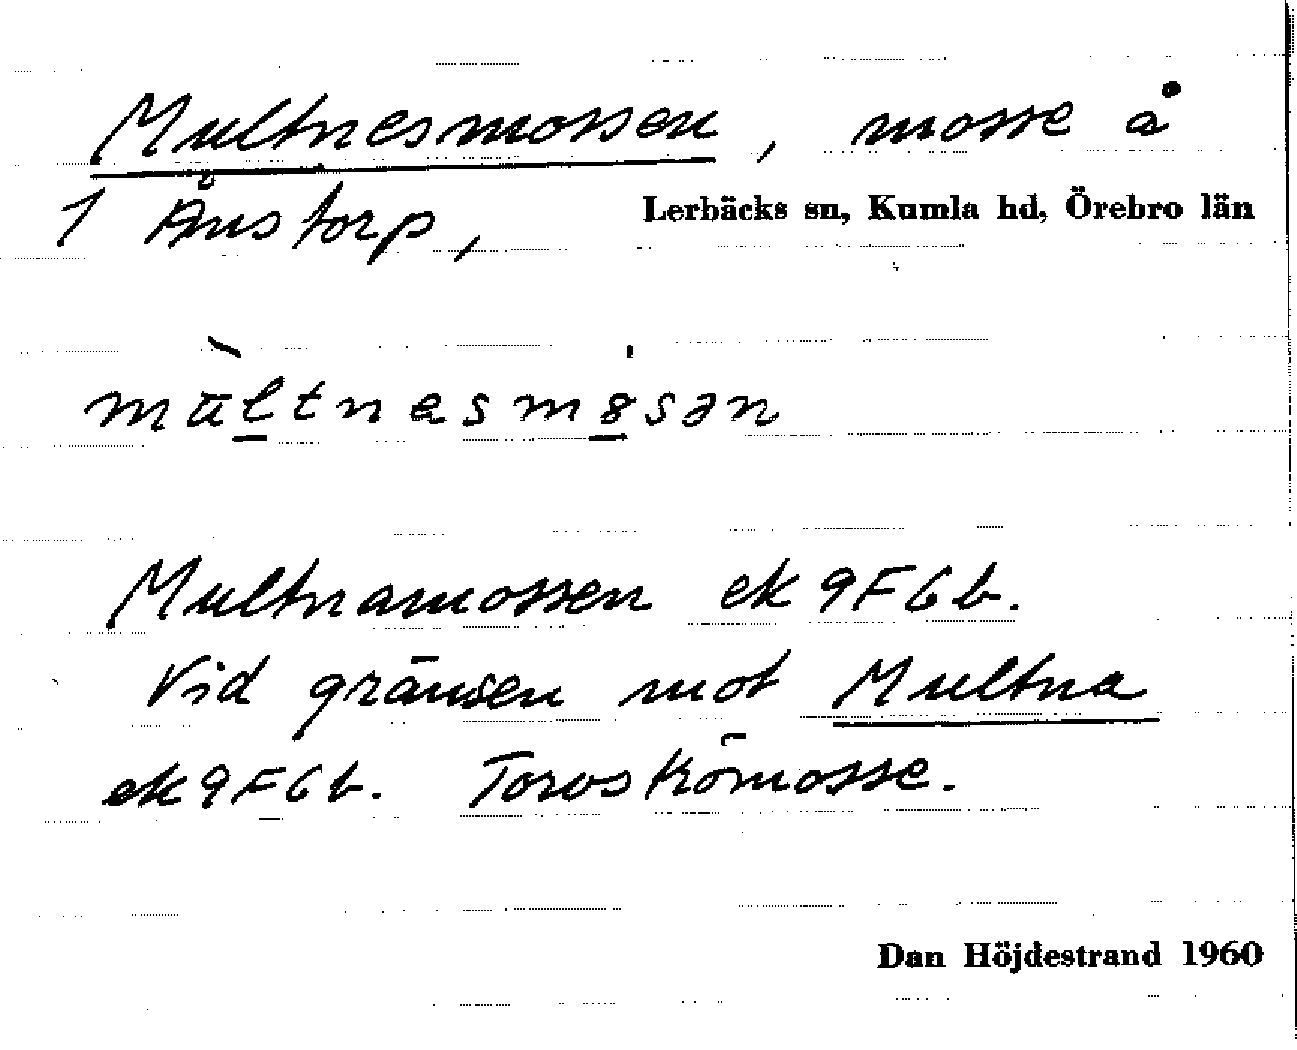 Multnesmossen, mosse å
1 Ånstorp, Lerbäcks sn, Kumla hd, Örebro län
mùltnesmósən
Multnamossen ek 9F6b.
Vid gränsen mot Multna
ek 9F6b. Torvströmosse.
Dan Höjdestrand 1960